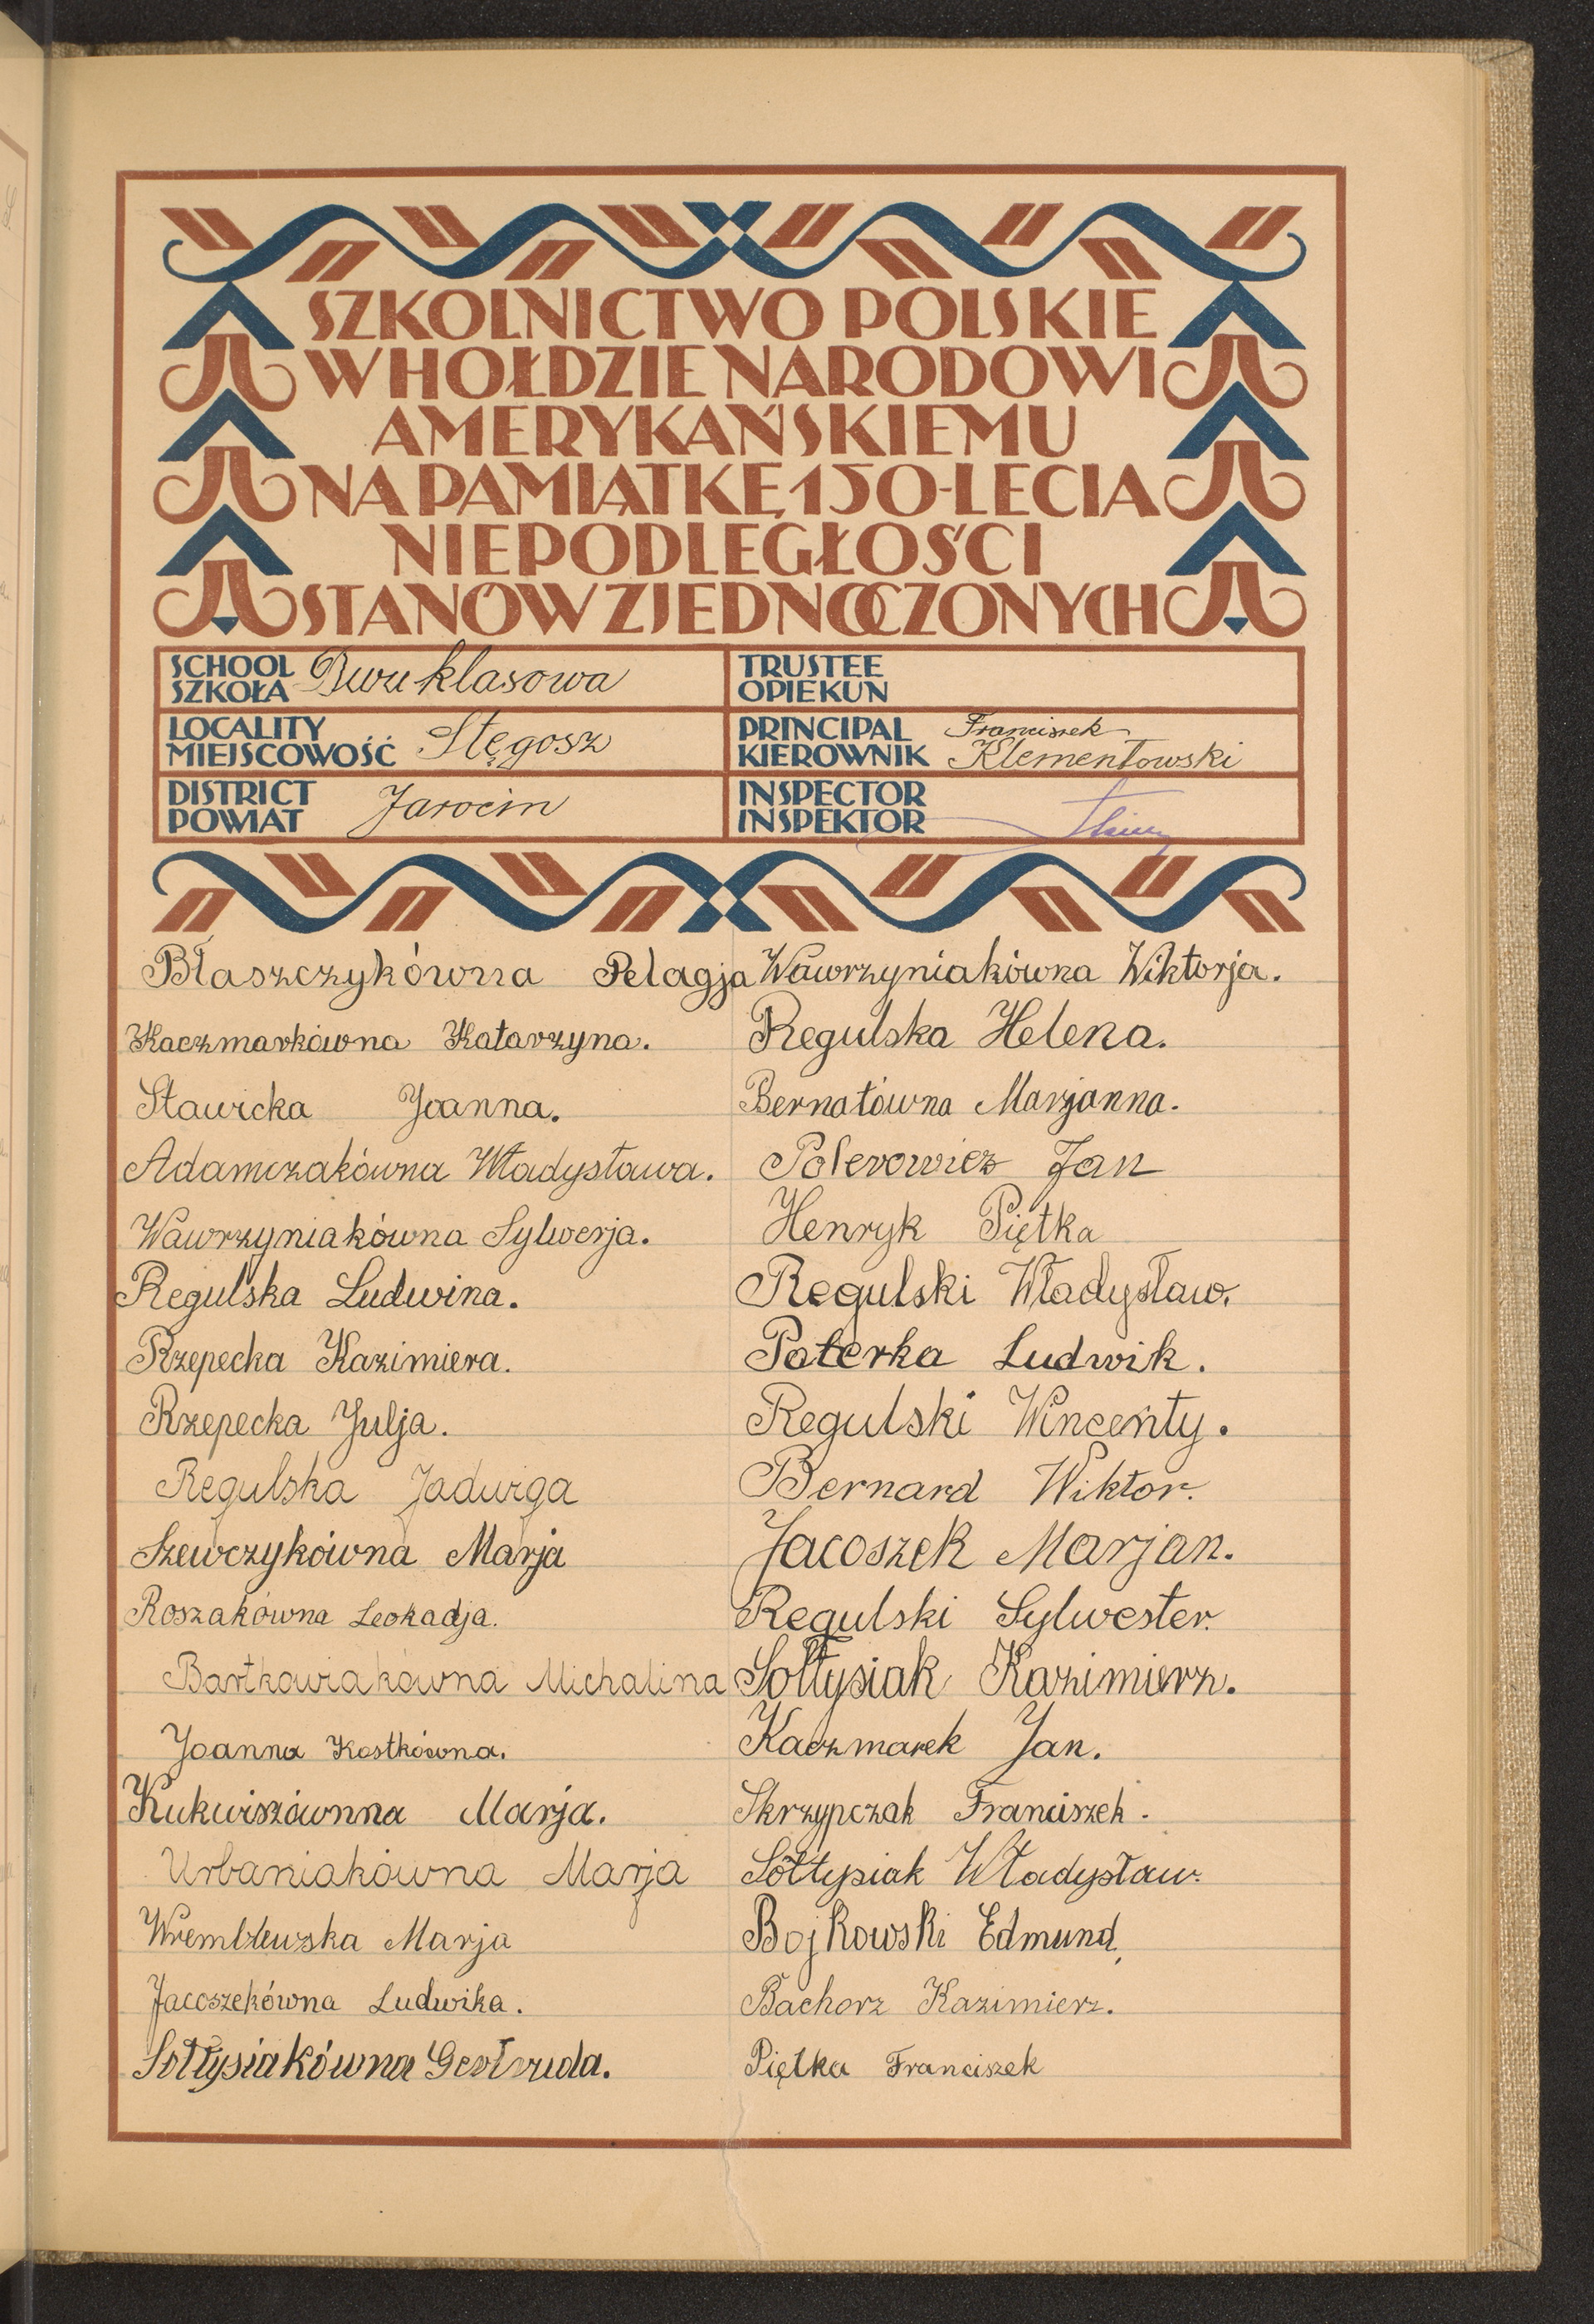 SZKOLNICTWO POLSKIE
W HOŁDZIE NARODOWI
AMERYKAŃSKIEMU
NA PAMIĄTKĘ 150-LECIA
NIEPODLEGŁOŚCI
STANÓW ZJEDNOCZONYCH
SCHOOL
SZKOŁA
Dwuklasowa
TRUSTEE
OPIEKUN
LOCALITY
MIEJSCOWOŚĆ
Stęgosz
PRINCIPAL
KIEROWNIK
Franciszek
Klementowski
DISTRICT
POWIAT
Jarocin
INSPECTOR
INSPEKTOR
Błaszczykówna Pelagja
Kaczmarkówna Katarzyna.
Stawicka Joanna.
Adamczakówna Władysława.
Wawrzyniakówna Sylwerja.
Regulska Ludwina.
Rzepecka Kazimiera.
Rzepecka Julja.
Regulska Jadwiga
Szewczykówna Marja
Roszakówna Leokadja.
Bartkowiakówna Michalina
Joanna Kostkówna.
Kukwiszównna Marja.
Urbaniakówna Marja
Wremblewska Marja
Jacoszekówna Ludwika.
Sołtysiakówna Gertruda.
Wawrzyniakówna Wiktorja.
Regulska Helena.
Bernatówna Marjanna.
Polerowicz Jan
Henryk Piętka
Regulski Władysław.
Paterka Ludwik.
Regulski Wincenty.
Bernard Wiktor.
Jacoszek Marjan.
Regulski Sylwester.
Sołtysiak Kazimierz.
Kaczmarek Jan.
Skrzypczak Franciszek.
Sołtysiak Władysław.
Bojkowski Edmund,
Bachorz Kazimierz.
Piętka Franciszek